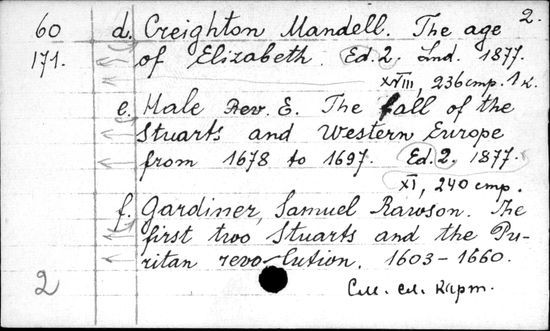 2.
60 d. Creighton Mandell. The age
171. of Elizabeth. Ed. 2. Lnd. 1877.
XVIII, 236 стр. 1 к.
e. Hale Rev. E. The fall of the
Stuarts and Western Europe
from 1678 to 1697. Ed. 2. 1877.
XI, 240 стр.
f. Gardiner, Samuel Rawson. The
first two Stuarts and the Pu-
ritan revolution. 1603-1660.
2 См. сл. карт.